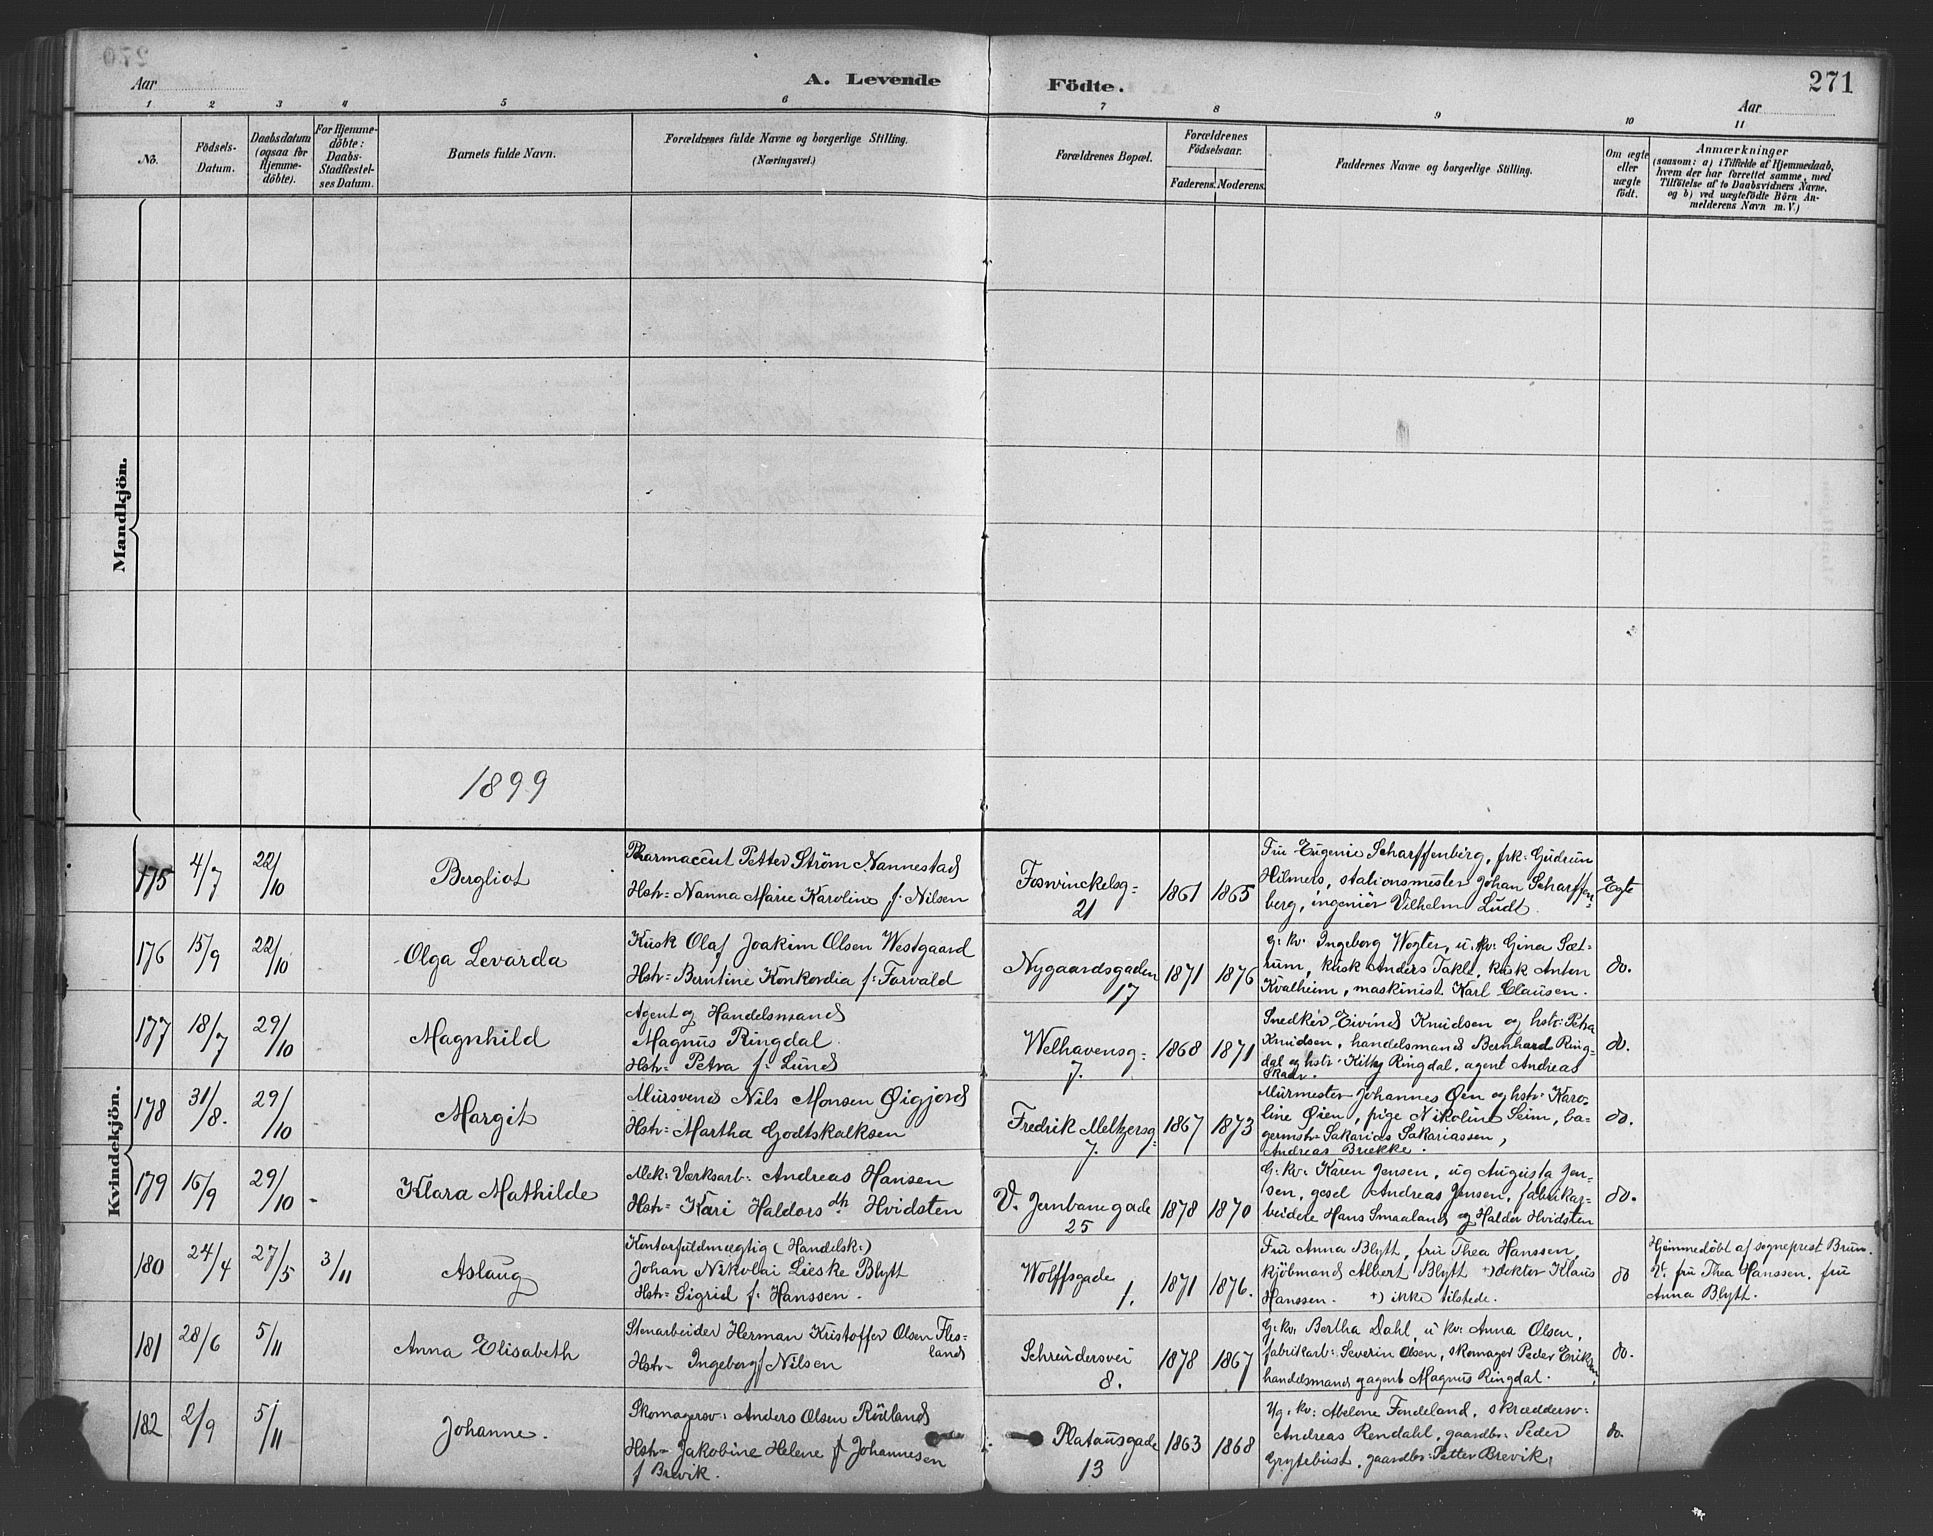 A. Levende Födte.
271
Aar
Aar
1 2 3 4 5 6 7 8 9 10 11
No.
Födsels-Datum.
Daabsdatum (ogsaa for Hjemme-döbte).
For Hjemme-döbte: Daabs-Stadfæstel-ses Datum.
Barnets fulde Navn.
Forældrenes fulde Navne og borgerlige Stilling.
(Næringsvei.)
Forældrenes Bopæl.
Forældrenes Födselsaar.
Faderens. Moderens.
Faddernes Navne og borgerlige Stilling.
Om ægte eller uægte födt.
Anmærkninger
(saasom: a) i Tilfælde af Hjemmedaab,
hvem der har forrettet samme, med
Tilföielse af to Daabsvidners Navne,
og b) ved uægtefödte Börn An-
melderens Navn m. V.)
Mandkjön.
1899
Kvindekjön.
175 4/7 22/10 Bergliot
Pharmaceut Petter Ström Nannestad
Hstr= Nanna Marie Karoline f. Nilsen
Foswinckelsg= 21
1861 1865
Fru Eugenie Scharffenberg, frk: Gudrun
Hilmers, stationsmester Johan Scharffen-
berg, ingeniör Vilhelm Ludt.
Egte
176 15/9 22/10 Olga Levarda
Kusk Olaf Joakim Olsen Westgaard
Hstr= Berntine Konkordia f: Farvald
Nygaardsgaden 17
1871 1876
G: kv: Ingeborg Wogter, u: kv: Gina Sæt-
rum, kusk Anders Takle, kusk Anton
Kvalheim, maskinist Karl Clausen.
do.
177 18/7 29/10 Magnhild
Agent og Handelsmand
Magnus Ringdal.
Hstr= Petra f: Lund
Welhavensg= 7.
1868 1871
Snedker Eivind Knudsen og hstr: Petra
Knudsen, handelsmand Bernhard Ring-
dal og hstr: Kitty Ringdal, agent Andreas
Skaar.
do.
178 31/8. 29/10 Margit
Mursvend Nils Monsen Øigjord
Hstr= Martha Godtskalksen
Fredrik Meltzersg= 7.
1867 1873
Murmester Johannes Øen og hstr: Karo-
line Øien, pige Nikoline Seim, ba-
germstr Sakarias Sakariassen,
Andreas Brække.
do.
179 16/9 29/10 - Klara Mathilde
Mek: Værksarb: Andreas Hansen
Hstr= Kari Haldors dtr Hvidsten
V. Jernbanegade 25
1878 1870
G: kv: Karen Jensen, ug Augusta Jen-
sen, gesel Andreas Jensen, fabrikar-
beidere Hans Smaaland og Haldor Hvidsten
do.
180 24/4 27/5 3/11 Aslaug
Kontorfuldmægtig (Handelsk:)
Johan Nikolai Lieske Blytt
Hstr= Sigrid f: Hanssen.
Wolffsgade 1.
1871 1876.
Fru Anna Blytt, fru Thea Hanssen,
kjöbmand Albert Blytt +) doktor Klaus
Hanssen. +) ikke tilstede.
do
Hjemmedöbt af sogneprest Brun.
V. fru Thea Hanssen, fru
Anna Blytt.
181 28/6 5/11 Anna Elisabeth
Stenarbeider Herman Kristoffer Olsen Fles-
land
Hstr= Ingeborg f Nilsen
Schreudersvei 8.
1878 1867
G: kv: Bertha Dahl, u kv: Anna Olsen,
fabrikarb: Severin Olsen, skomager Peder Eriksen,
handelsmand og agent Magnus Ringdal.
do.
182 2/9 5/11 Johanne.
Skomagersv: Anders Olsen Rödland
Hstr= Jakobine Helene f Johannesen
f Brevik.
Platousgade 13
1863 1868
Ug: kv: Abelone Fondeland, skræddersv:
Andreas Rendahl, gaardbr: Peder
Grytebust, gaardbr: Petter Brevik,
do.